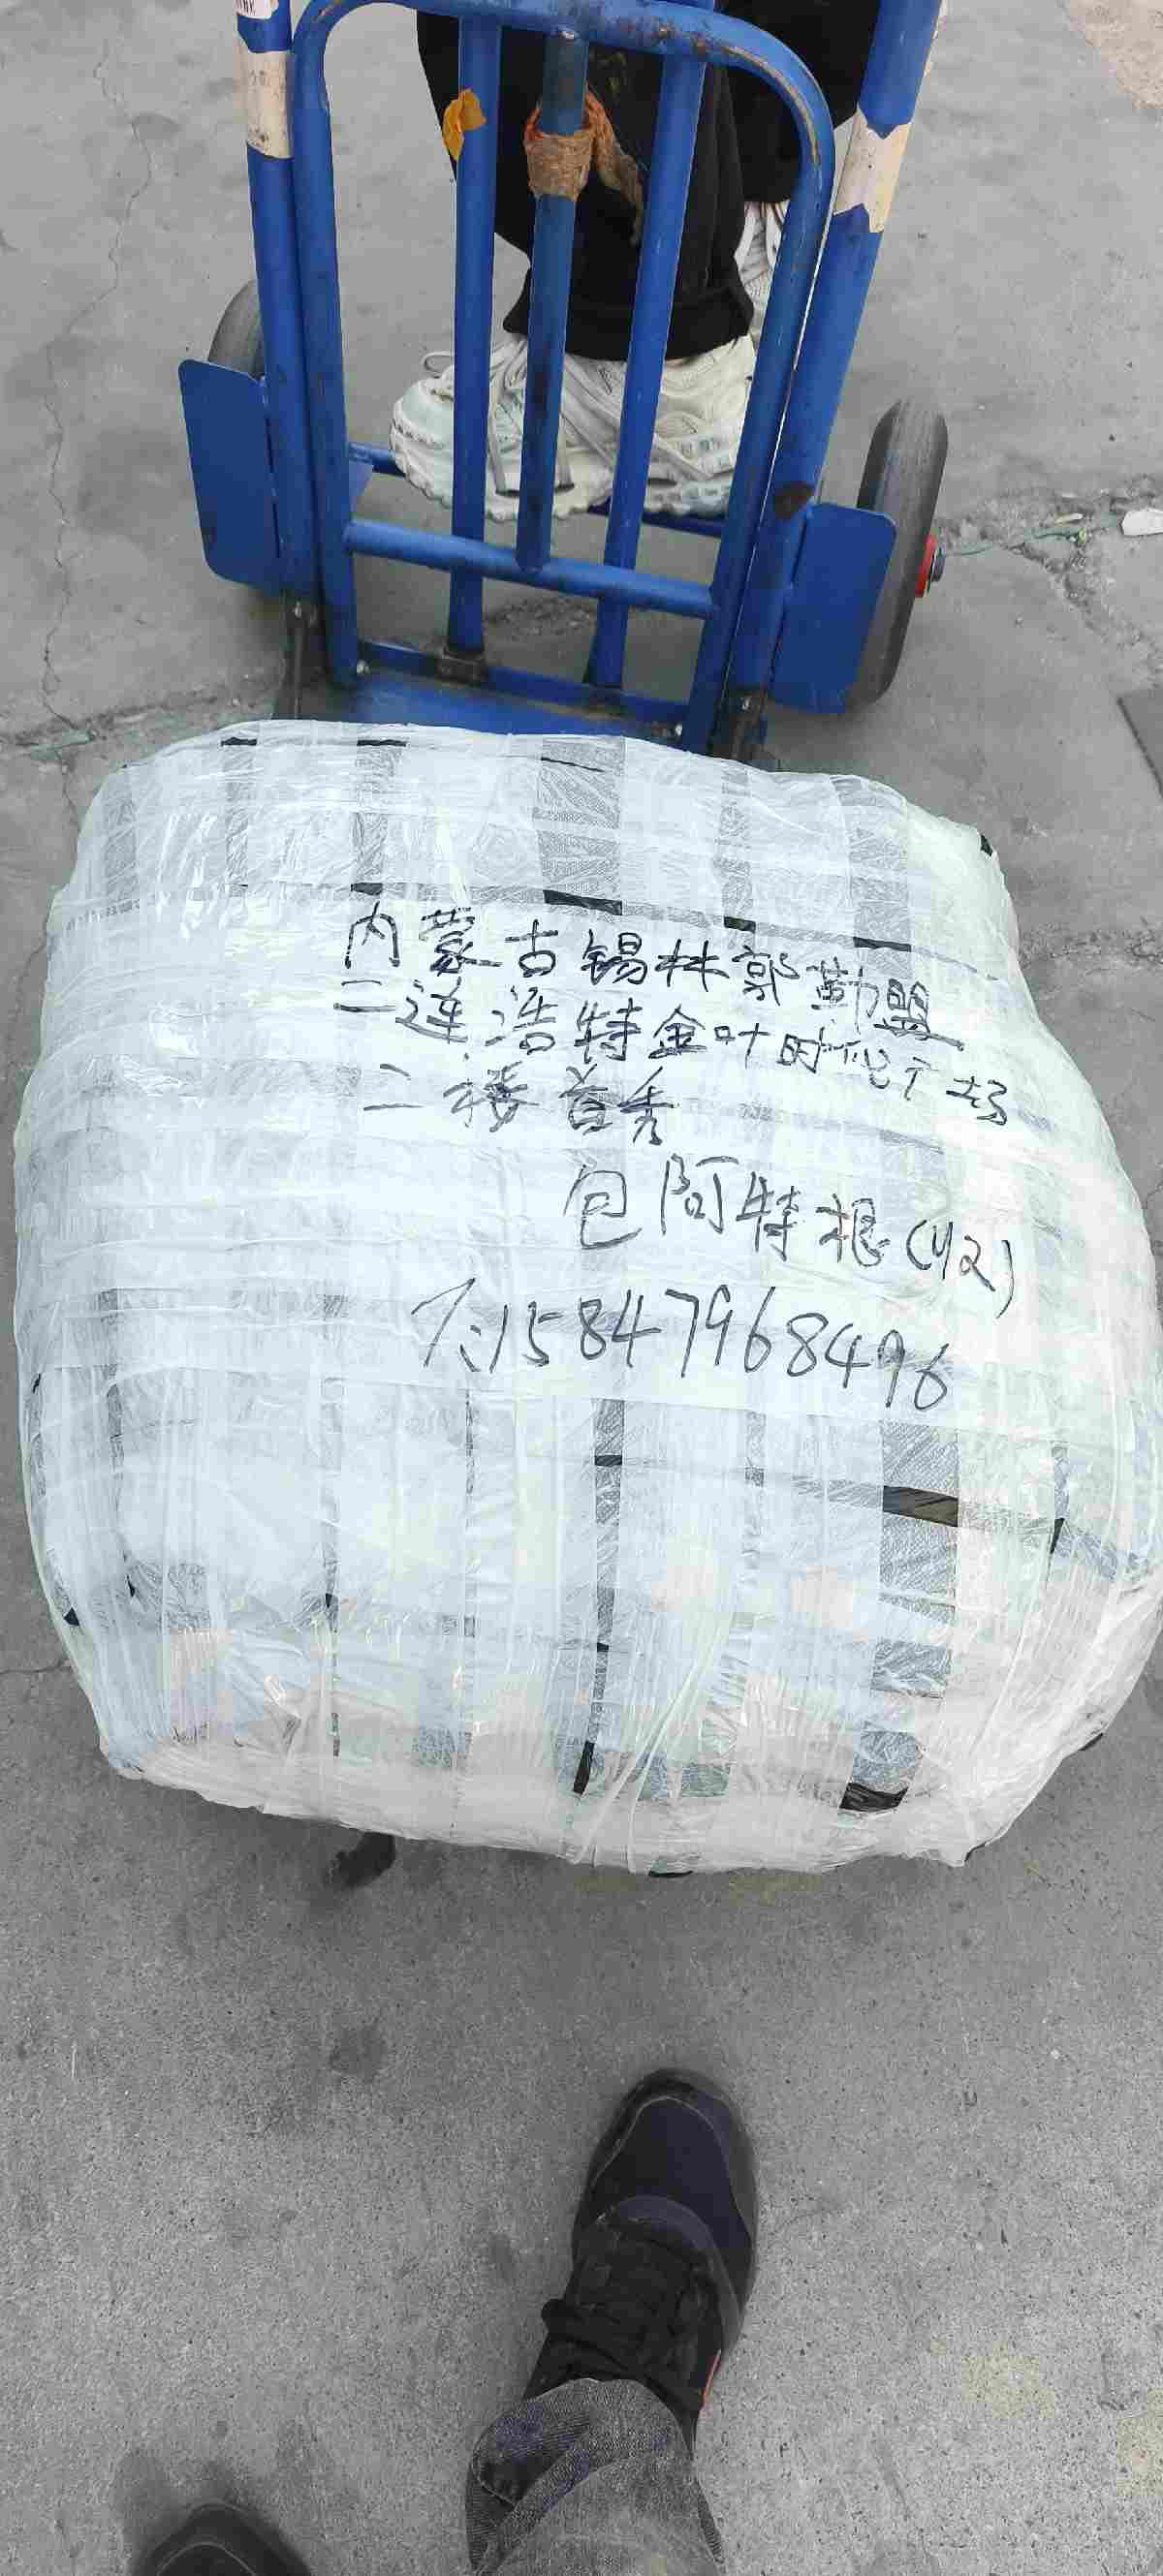 内蒙古锡林郭勒盟
二连浩特金叶时代广场
二楼首秀
包阿特根(收)
T:15847968496